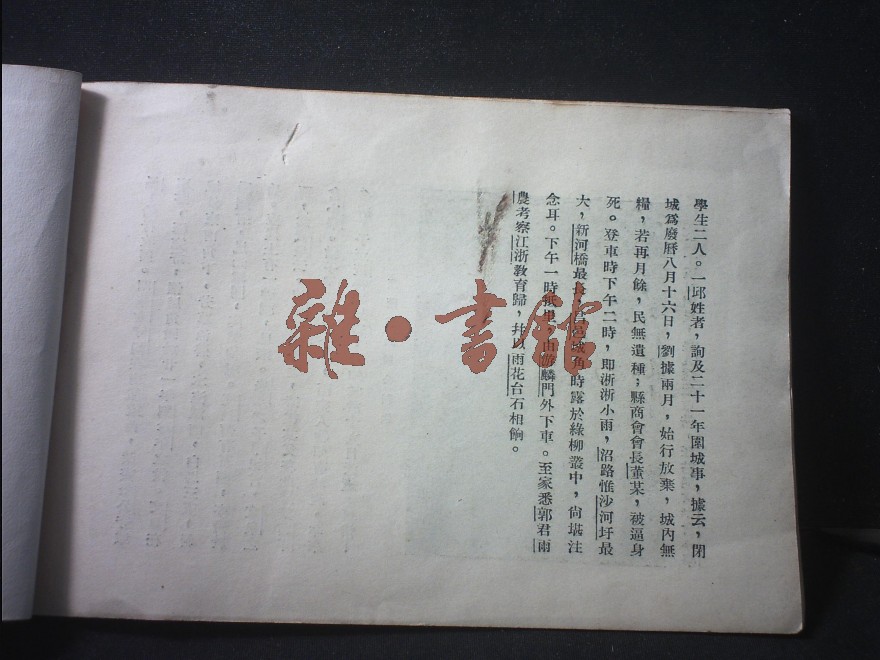 學生二人。一邱姓者，詢及二十一年圍城事，據云，閉
城爲廢曆八月十六日，劉據兩月，始行放棄，城內無
糧，若再月餘，民無遺種；縣商會會長董某，被逼身
死。登車時下午二時，卽淅淅小雨，沿路惟沙河圩最
大，新河橋最長，昌邑城角時露於綠柳叢中，尙堪注
念耳。下午一時抵里，由 麟門外下車。至家悉郭君雨
農考察江浙教育歸，幷以雨花台石相餉。
雜·書館